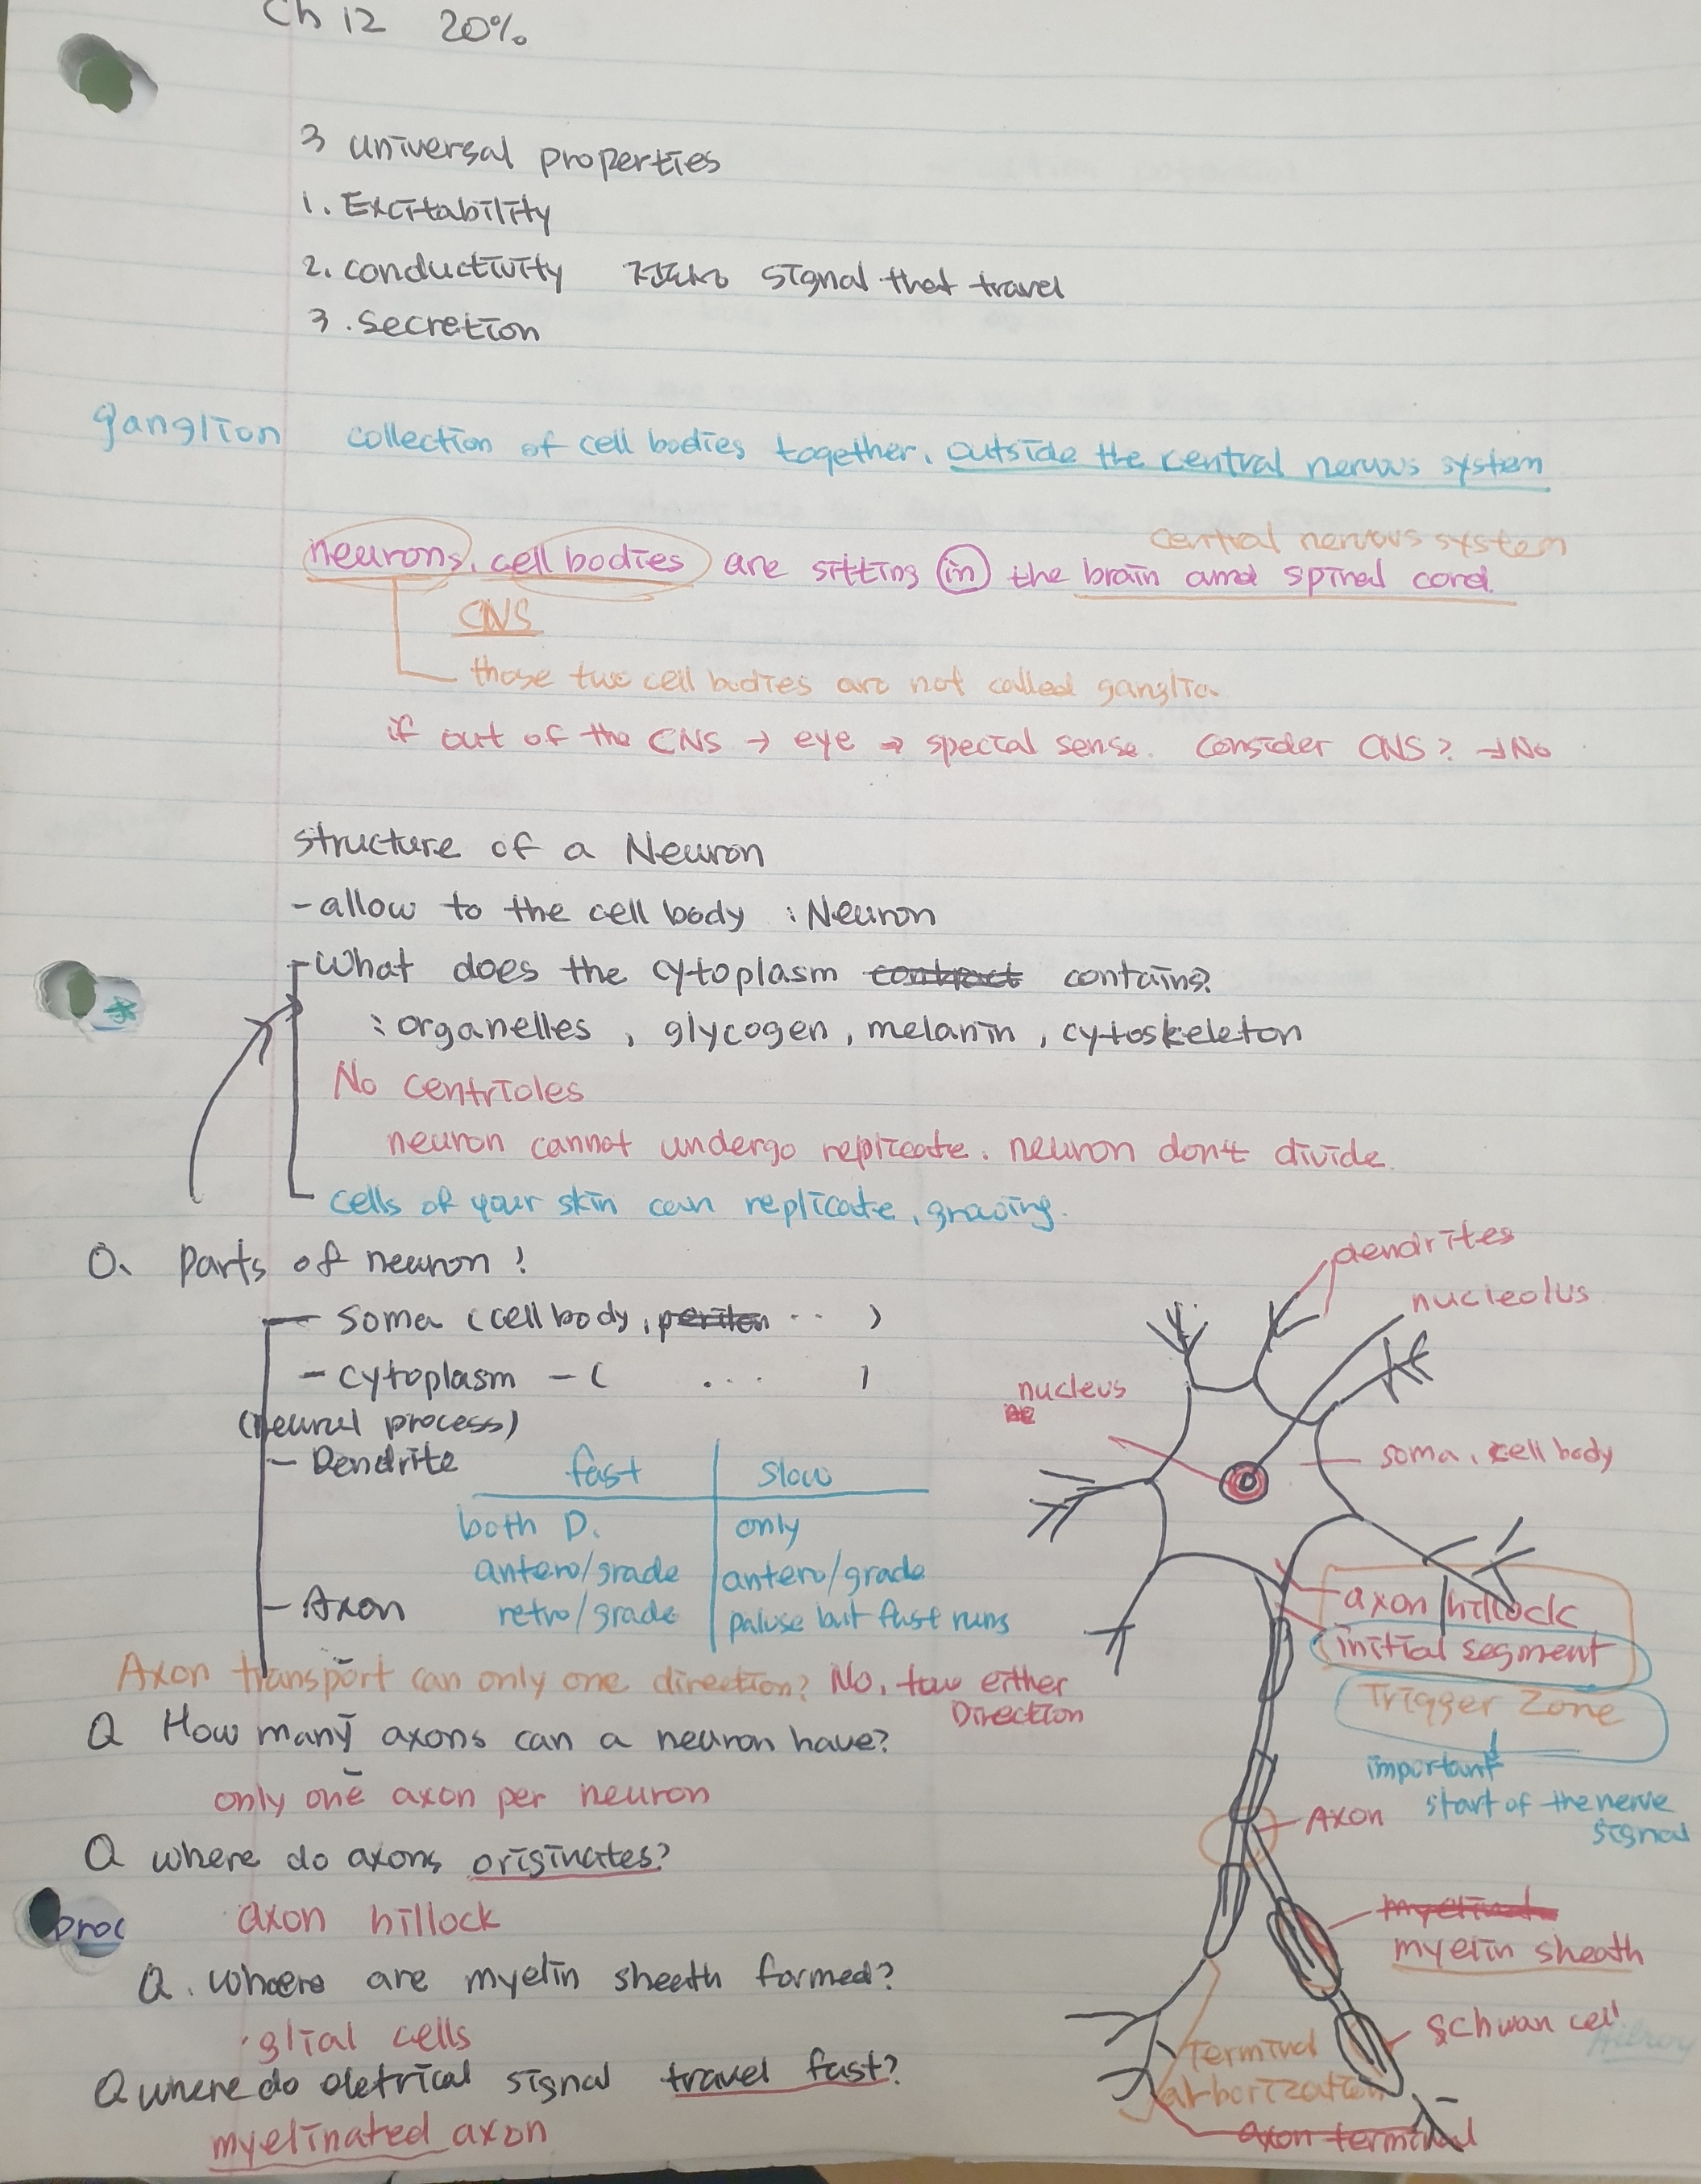 Ch 12 20%
3 universal properties
1. Excitability
2. conductivity 전도성 signal that travel
3. secretion
ganglion collection of cell bodies together, outside the central nervous system
central nervous system
neurons, cell bodies are sitting in the brain and spinal cord.
CNS
those two cell bodies are not called ganglia
if out of the CNS → eye → special sense. Consider CNS? → No
structure of a Neuron
- allow to the cell body : Neuron
- What does the cytoplasm contains?
: organelles, glycogen, melanin, cytoskeleton
No centrioles
neuron cannot undergo replicate. neuron don't divide.
cells of your skin can replicate, growing.
Q. Parts of neuron?
- Soma (cell body, ... )
- cytoplasm - ( ... )
(neural process)
- Dendrite
fast slow
both D. only
antero/grade antero/grade
- Axon
retro/grade but fast runs
Axon transport can only one direction? No, two either
Direction
Q How many axons can a neuron have?
only one axon per neuron
Q where do axons originates?
proc axon hillock
Q. where are myelin sheath formed?
glial cells
Q where do eletrical signal travel fast?
myelinated axon
dendrites
nucleolus
nucleus
soma, cell body
axon hillock
initial segment
Trigger Zone
important
start of the nerve
signal
Axon
myelin sheath
Schwan cell
Hilroy
Terminal
arborization
axon terminal